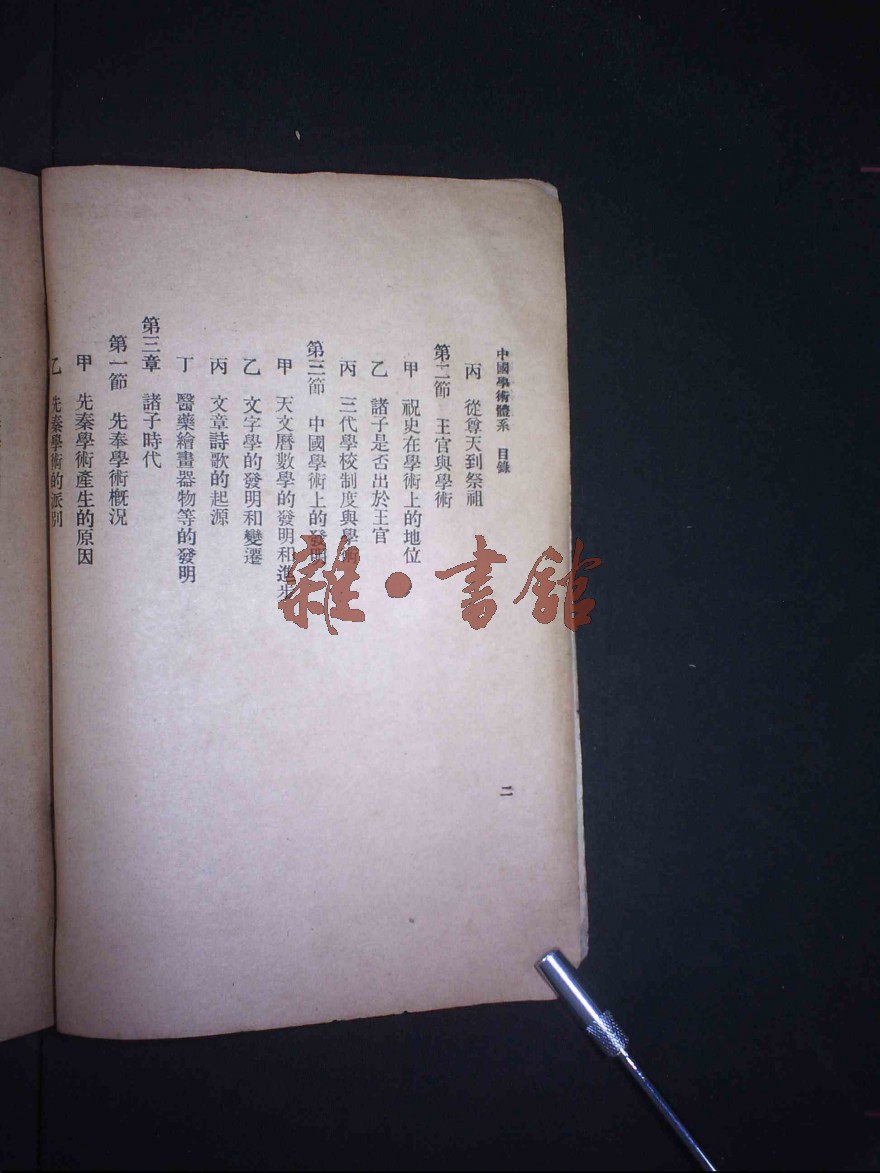 中國學術體系　目錄
丙　從尊天到祭祖
第二節　王官與學術
甲　祝史在學術上的地位
乙　諸子是否出於王官
丙　三代學校制度與學術
第三節　中國學術上的發明
甲　天文曆數學的發明和進步
乙　文字學的發明和變遷
丙　文章詩歌的起源
丁　醫藥繪畫器物等的發明
第三章　諸子時代
第一節　先秦學術概況
甲　先秦學術產生的原因
乙　先秦學術的派別
二
雜·書館